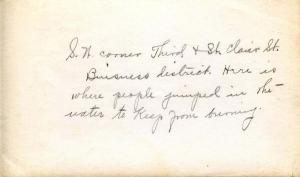 S. W. corner Third & St. Clair St.
Buisness district. Here is
where people jumped in the
water to keep from burning.